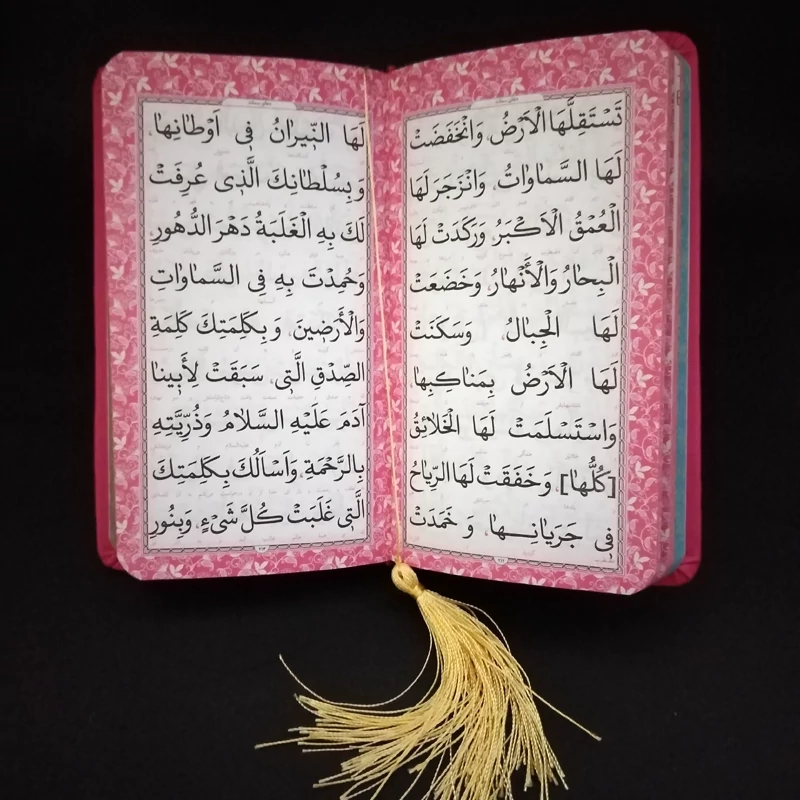 تَسْتَقِلَّهَا الْاَرْضُ، وَانْخَفَضَتْ
لَهَا السَّمٰاوٰاتُ، وَانْزَجَرَ لَهَا
الْعُمْقُ الْاَكْبَرُ، وَرَكَدَتْ لَهَا
الْبِحٰارُ وَالْأَنْهٰارُ، وَخَضَعَتْ
لَهَا الْجِبٰالُ، وَسَكَنَتْ
لَهَا الْاَرْضُ بِمَنٰاكِبِهٰا،
وَاسْتَسْلَمَتْ لَهَا الْخَلٰائِقُ
[كُلُّهٰا]، وَخَفَقَتْ لَهَا الرِّيٰاحُ
فِى جَرَيٰانِهٰا، وَ خَمَدَتْ
لَهَا النّٖيرٰانُ فِى اَوْطٰانِهٰا،
وَبِسُلْطٰانِكَ الَّذِى عُرِفَتْ
لَكَ بِهِ الْغَلَبَةُ دَهْرَ الدُّهُورِ،
وَحُمِدْتَ بِهِ فِى السَّمٰاوٰاتِ
وَالْأَرَضٖينَ، وَ بِكَلِمَتِكَ كَلِمَةِ
الصِّدْقِ الَّتِى سَبَقَتْ لِأَبٖينٰا
آدَمَ عَلَيْهِ السَّلٰامُ وَذُرِّيَّتِهِ
بِالرَّحْمَةِ، وَاَسْأَلُكَ بِكَلِمَتِكَ
الَّتِى غَلَبَتْ كُلَّ شَىْءٍ، وَبِنُورِ